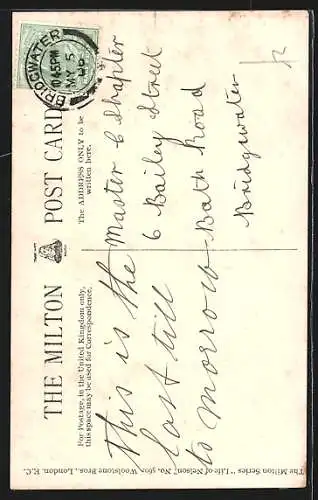 THE MILTON POST CARD
For Postage, in the United Kingdom only,
this space may be used for Correspondence.
The ADDRESS ONLY to be
written here.
This is the
last till
to morrow
Master C Shapter
6 Bailey Street
Bath Road
Bridgwater
BRIDGWATER
10.45PM
MY 5
The Milton Series "Life of Nelson," No. 560, Woolstone Bros., London, E.C.